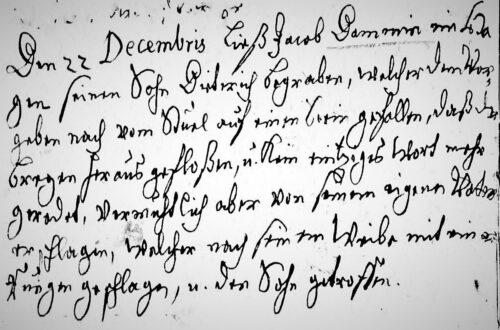 Den 22 Decembris ließ Jacob Dammin
seinen Sohn Diederich begraben, welcher dem Vor-
geben nach vom Stuel auf einen gefallen, daß
bregen heraus gefloßen, u. kein eintziges Wort mehr
geredet, vermuthlich aber von seinem eigenen Vater
erschlagen, welcher nach seinem Weibe mit
geschlagen, u. den Sohn getroffen.